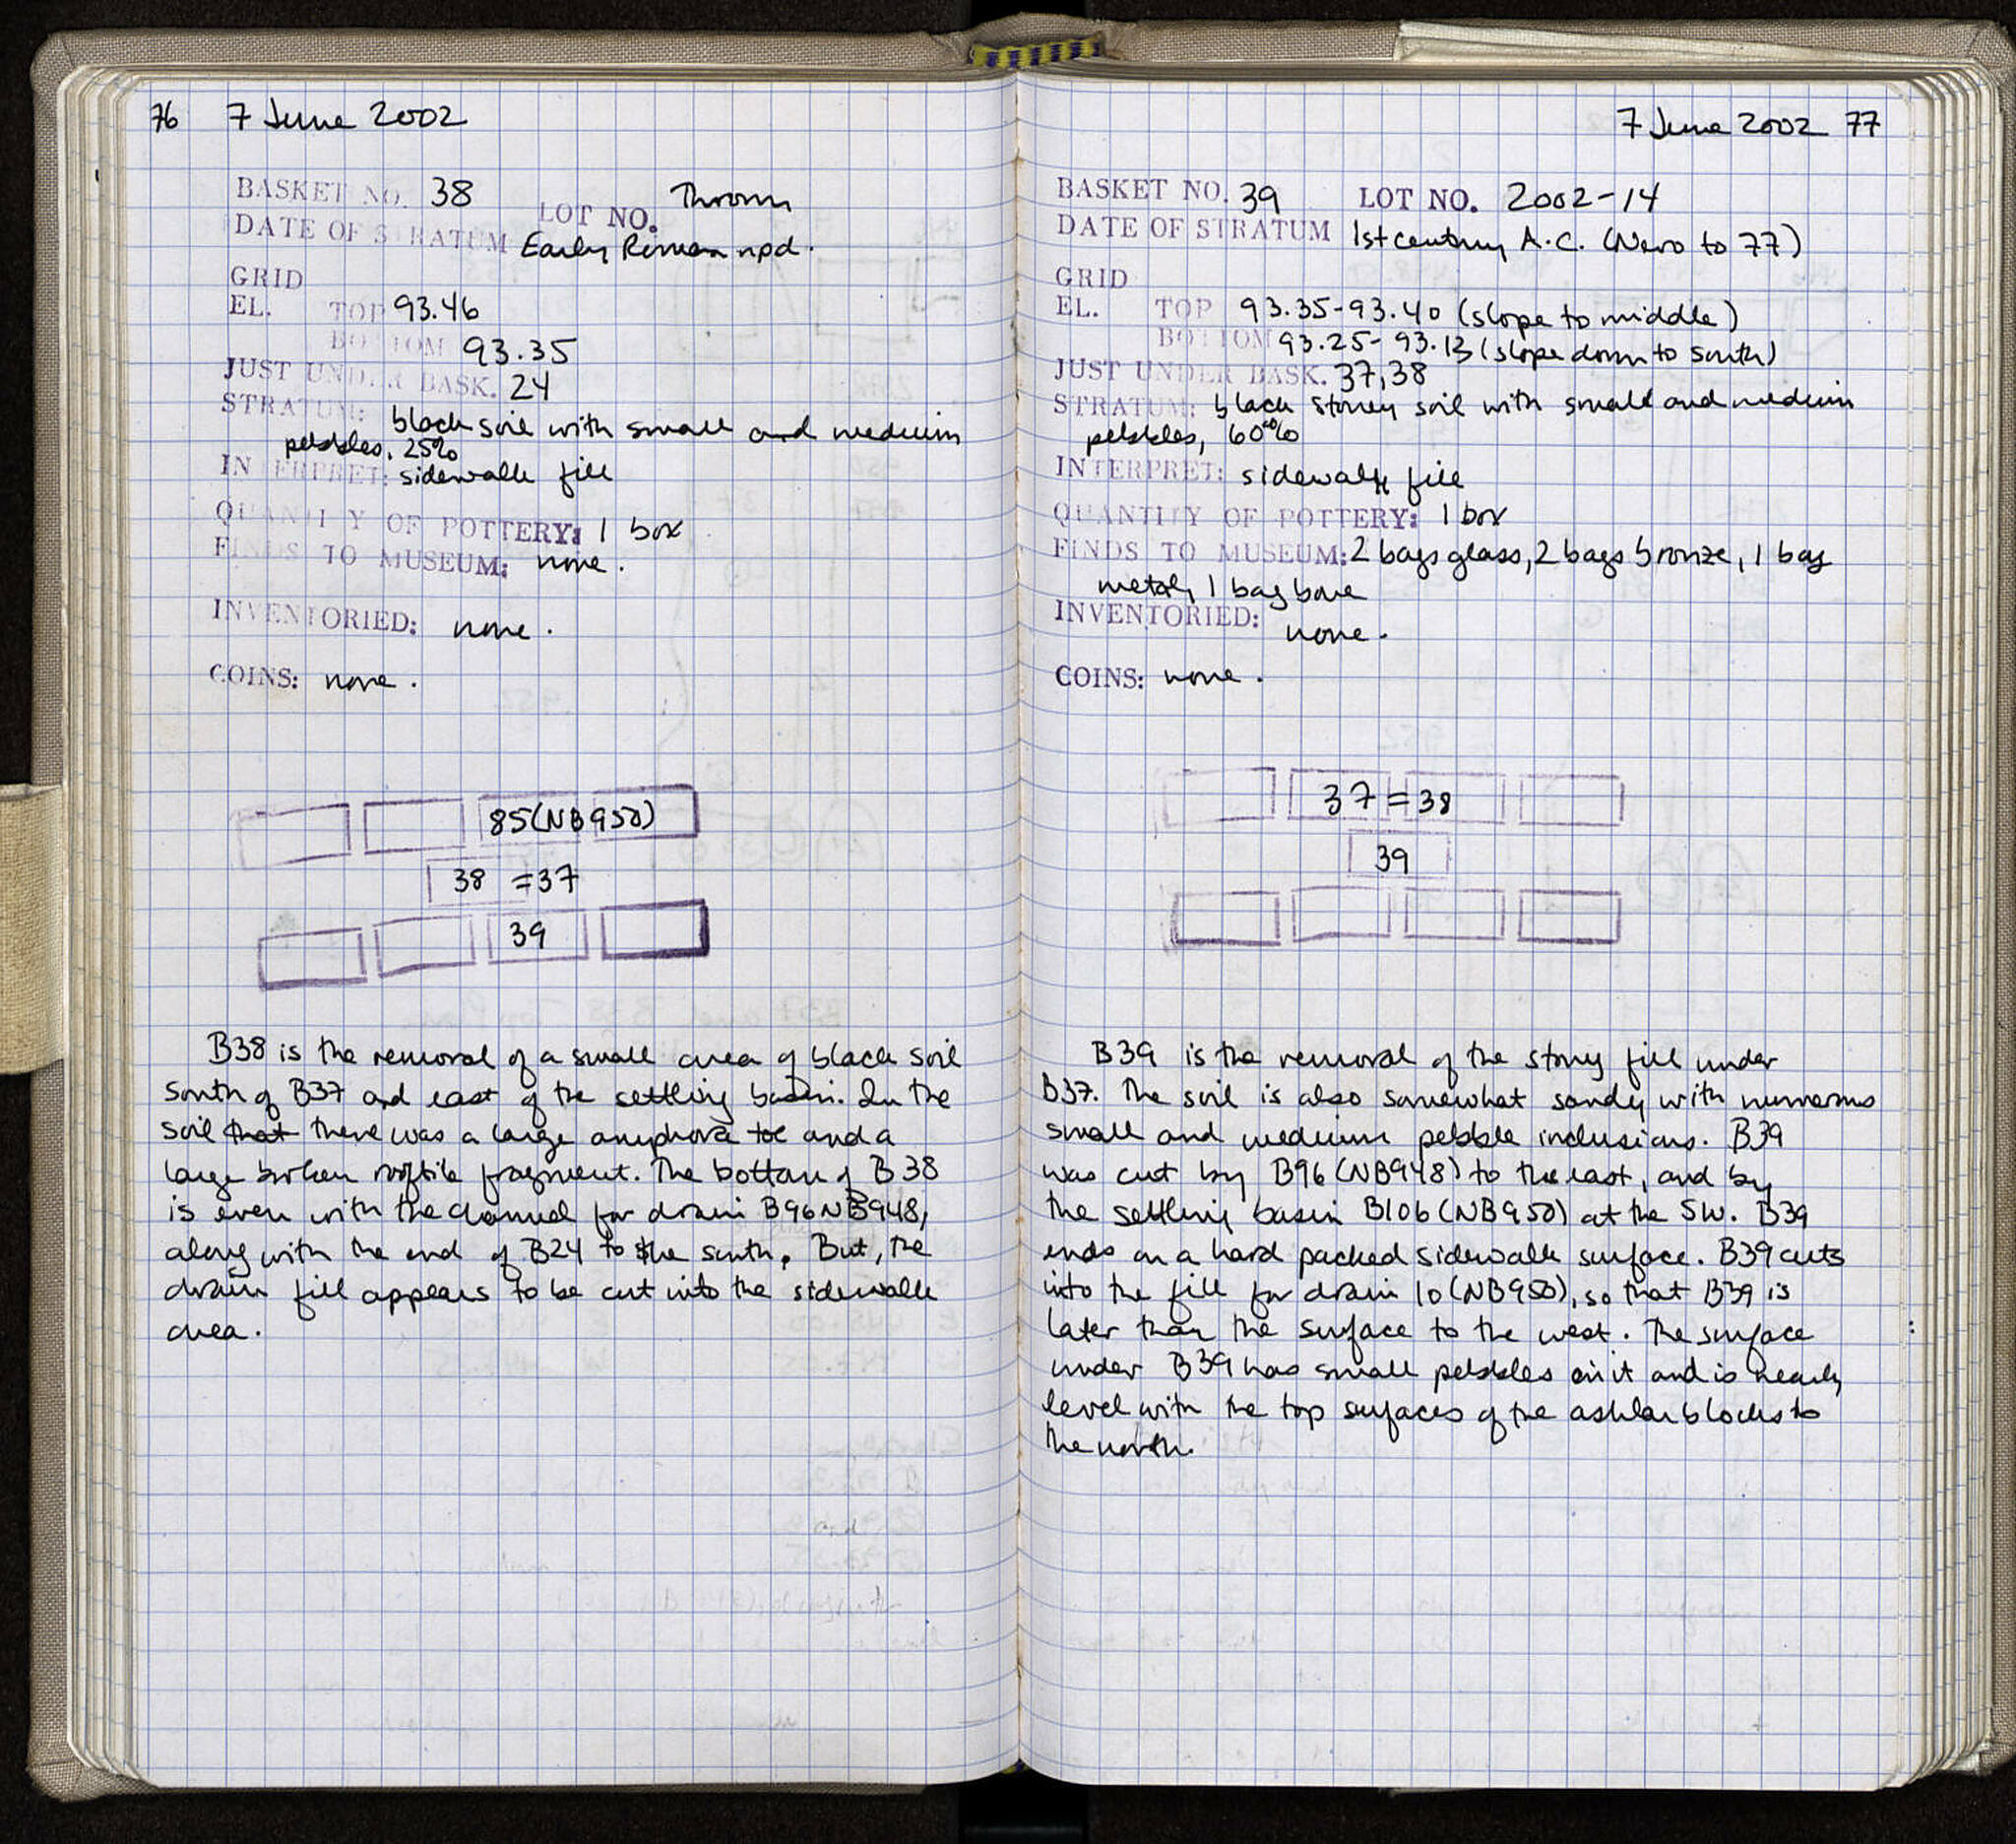 76 7 June 2002
BASKET NO. 38 LOT NO. Thrown
DATE OF STRATUM Early Roman npd.
GRID
EL. TOP 93.46
BOTTOM 93.35
JUST UNDER BASK. 24
STRATUM: black soil with small and medium
pebbles, 25%
INTERPRET: sidewalk fill
QUANTITY OF POTTERY: 1 box
FINDS TO MUSEUM: none.
INVENTORIED: none.
COINS: none.
85(NB950)
38 =37
39
B38 is the removal of a small area of black soil
south of B37 and east of the settling basin. In the
soil that there was a large amphora toe and a
large broken rooftile fragment. The bottom of B38
is even with the channel for drain B96NB948,
along with the end of B24 to the south. But, the
drain fill appears to be cut into the sidewalk
area.
7 June 2002 77
BASKET NO. 39 LOT NO. 2002-14
DATE OF STRATUM 1st century A.C. (Nero to 77)
GRID
EL. TOP 93.35-93.40 (slope to middle)
BOTTOM 93.25-93.13 (slope down to south)
JUST UNDER BASK. 37,38
STRATUM: black stoney soil with small and medium
pebbles, 60%
INTERPRET: sidewalk fill
QUANTITY OF POTTERY: 1 box
FINDS TO MUSEUM: 2 bags glass, 2 bags bronze, 1 bag
metal, 1 bag bone
INVENTORIED: none.
COINS: none.
37 = 38
39
B39 is the removal of the stony fill under
B37. The soil is also somewhat sandy with numerous
small and medium pebble inclusions. B39
was cut by B96 (NB948) to the east, and by
the settling basin B106 (NB950) at the SW. B39
ends on a hard packed sidewalk surface. B39 cuts
into the fill for drain 10 (NB950), so that B39 is
later than the surface to the west. The surface
under B39 has small pebbles on it and is nearly
level with the top surfaces of the ashlar blocks to
the north.